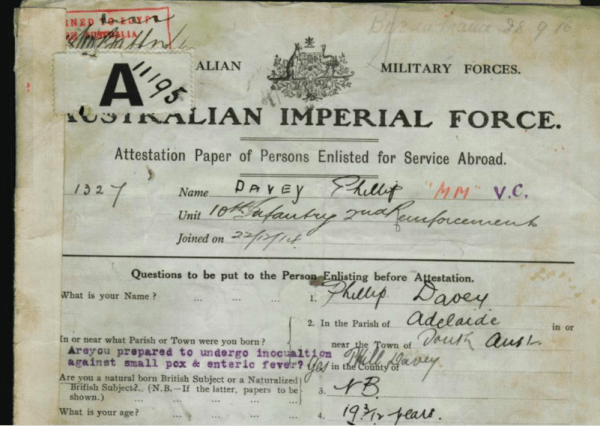 RNED TO EGYPT
AUSTRALIA
28.9.16
A 11195
ALIAN MILITARY FORCES.
AUSTRALIAN IMPERIAL FORCE.
Attestation Paper of Persons Enlisted for Service Abroad.
1327 Name DAVEY Phillip "MM" V.C.
Unit 10th Infantry 2nd Reinforcements
Joined on 22/12/14
Questions to be put to the Person Enlisting before Attestation.
What is your Name? ... ... ... 1. Phillip Davey
2. In the Parish of Adelaide in or
In or near what Parish or Town were you born? near the Town of South Aust
Areyou prepared to undergo inocualtion
against small pox & enteric fever? Yes Phill Davey in the County of
Are you a natural born British Subject or a Naturalized
British Subject? (N.B.—If the latter, papers to be
shown.) ... ... ... 3. NB.
What is your age? ... ... ... 4. 19 3/12 years.